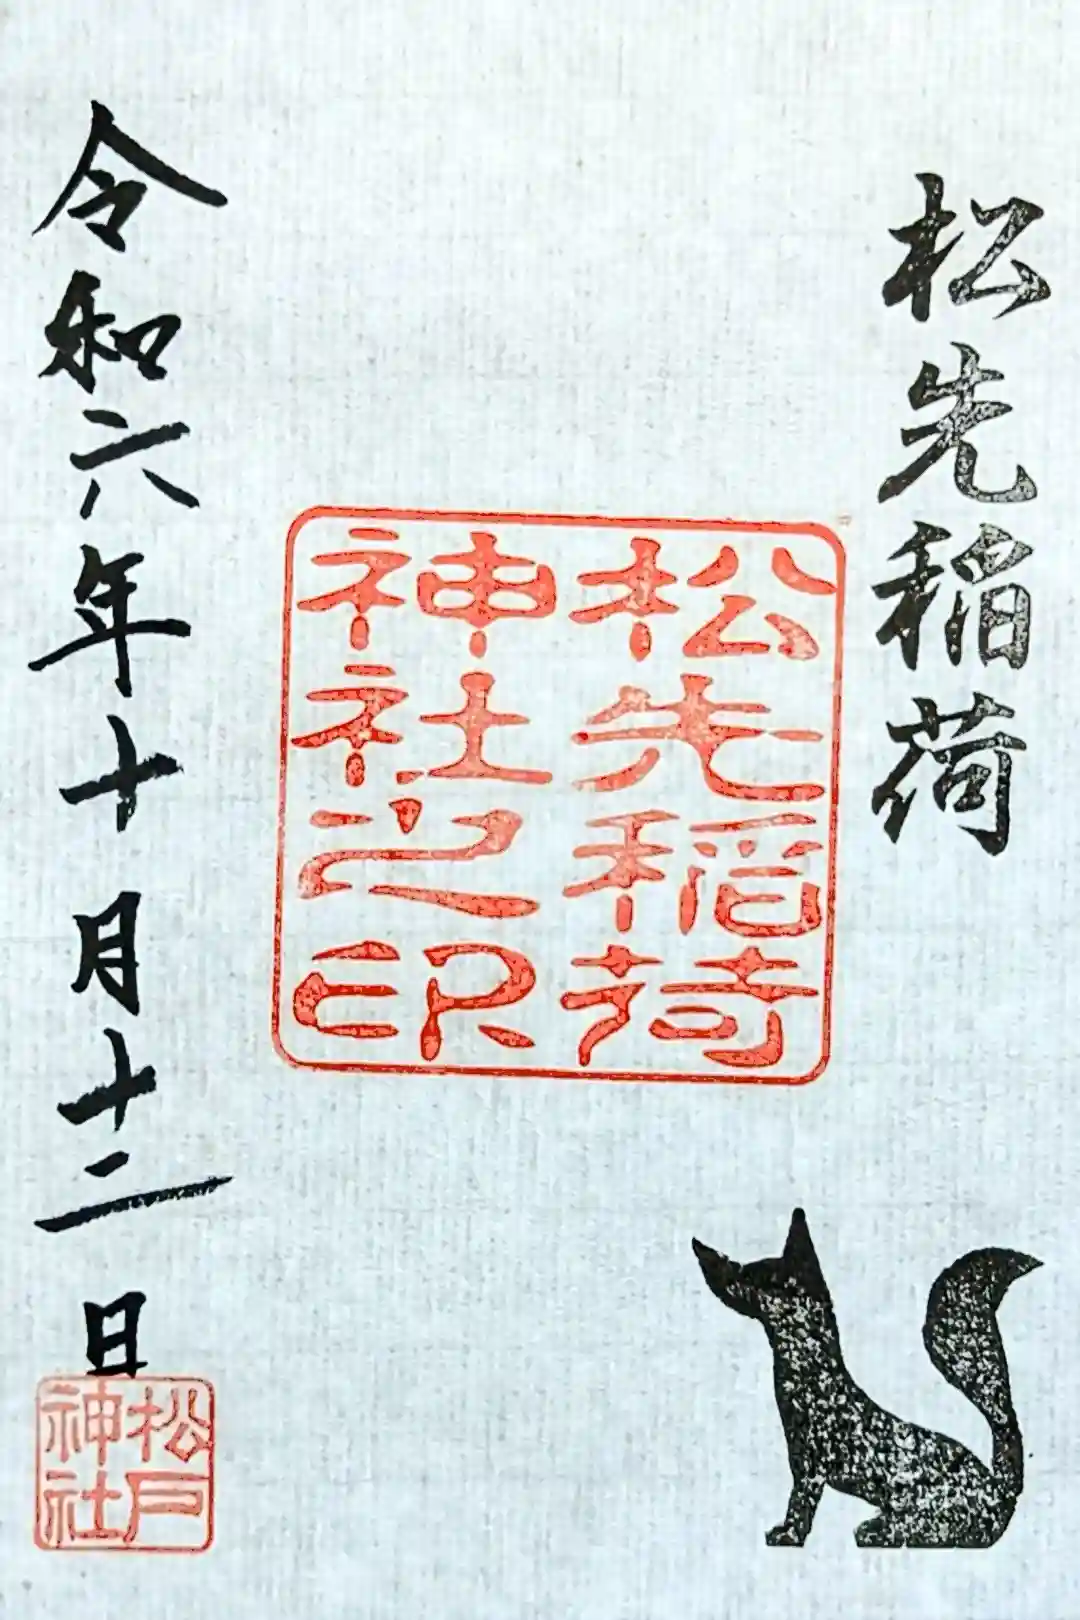 松先稲荷
松先稲荷
神社之印
令和六年十月十二日
松戸
神社